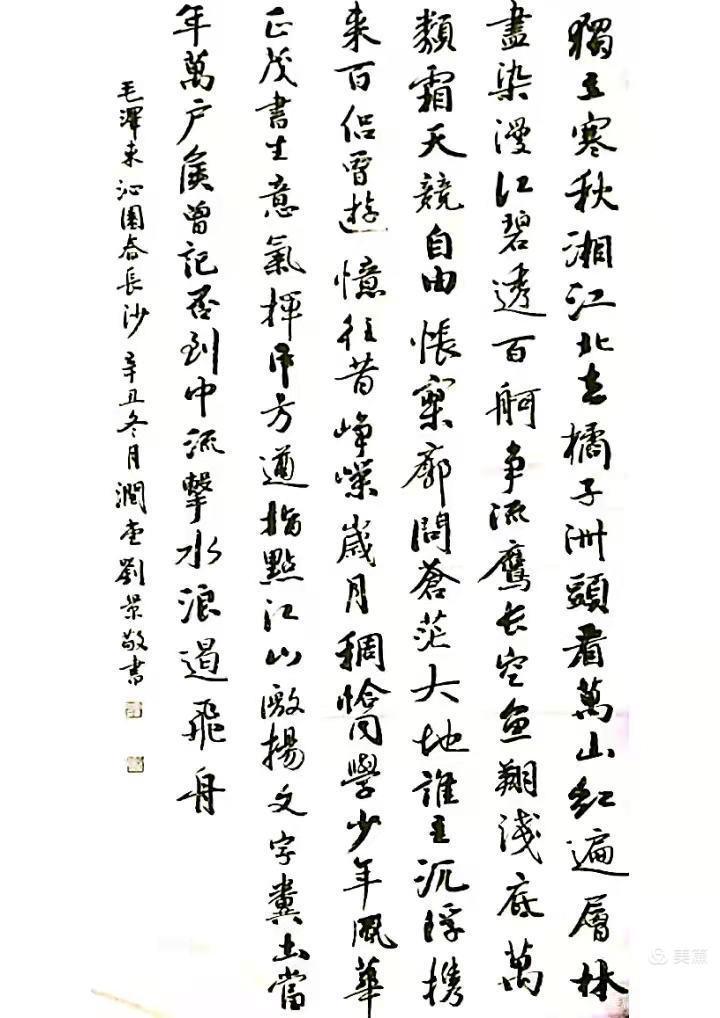 獨立寒秋湘江北去橘子洲頭看萬山紅遍層林
盡染漫江碧透百舸争流鷹长空鱼翔淺底萬
類霜天競自由悵寥廓問蒼茫大地誰主沉浮携
来百侣曾遊憶往昔崢嶸歲月稠恰同學少年風華
正茂書生意氣揮斥方遒指點江山激揚文字糞土當
年萬户侯曾記否到中流擊水浪遏飛舟
毛澤東沁園春長沙 辛丑冬月潤堂劉景敬書
美篇